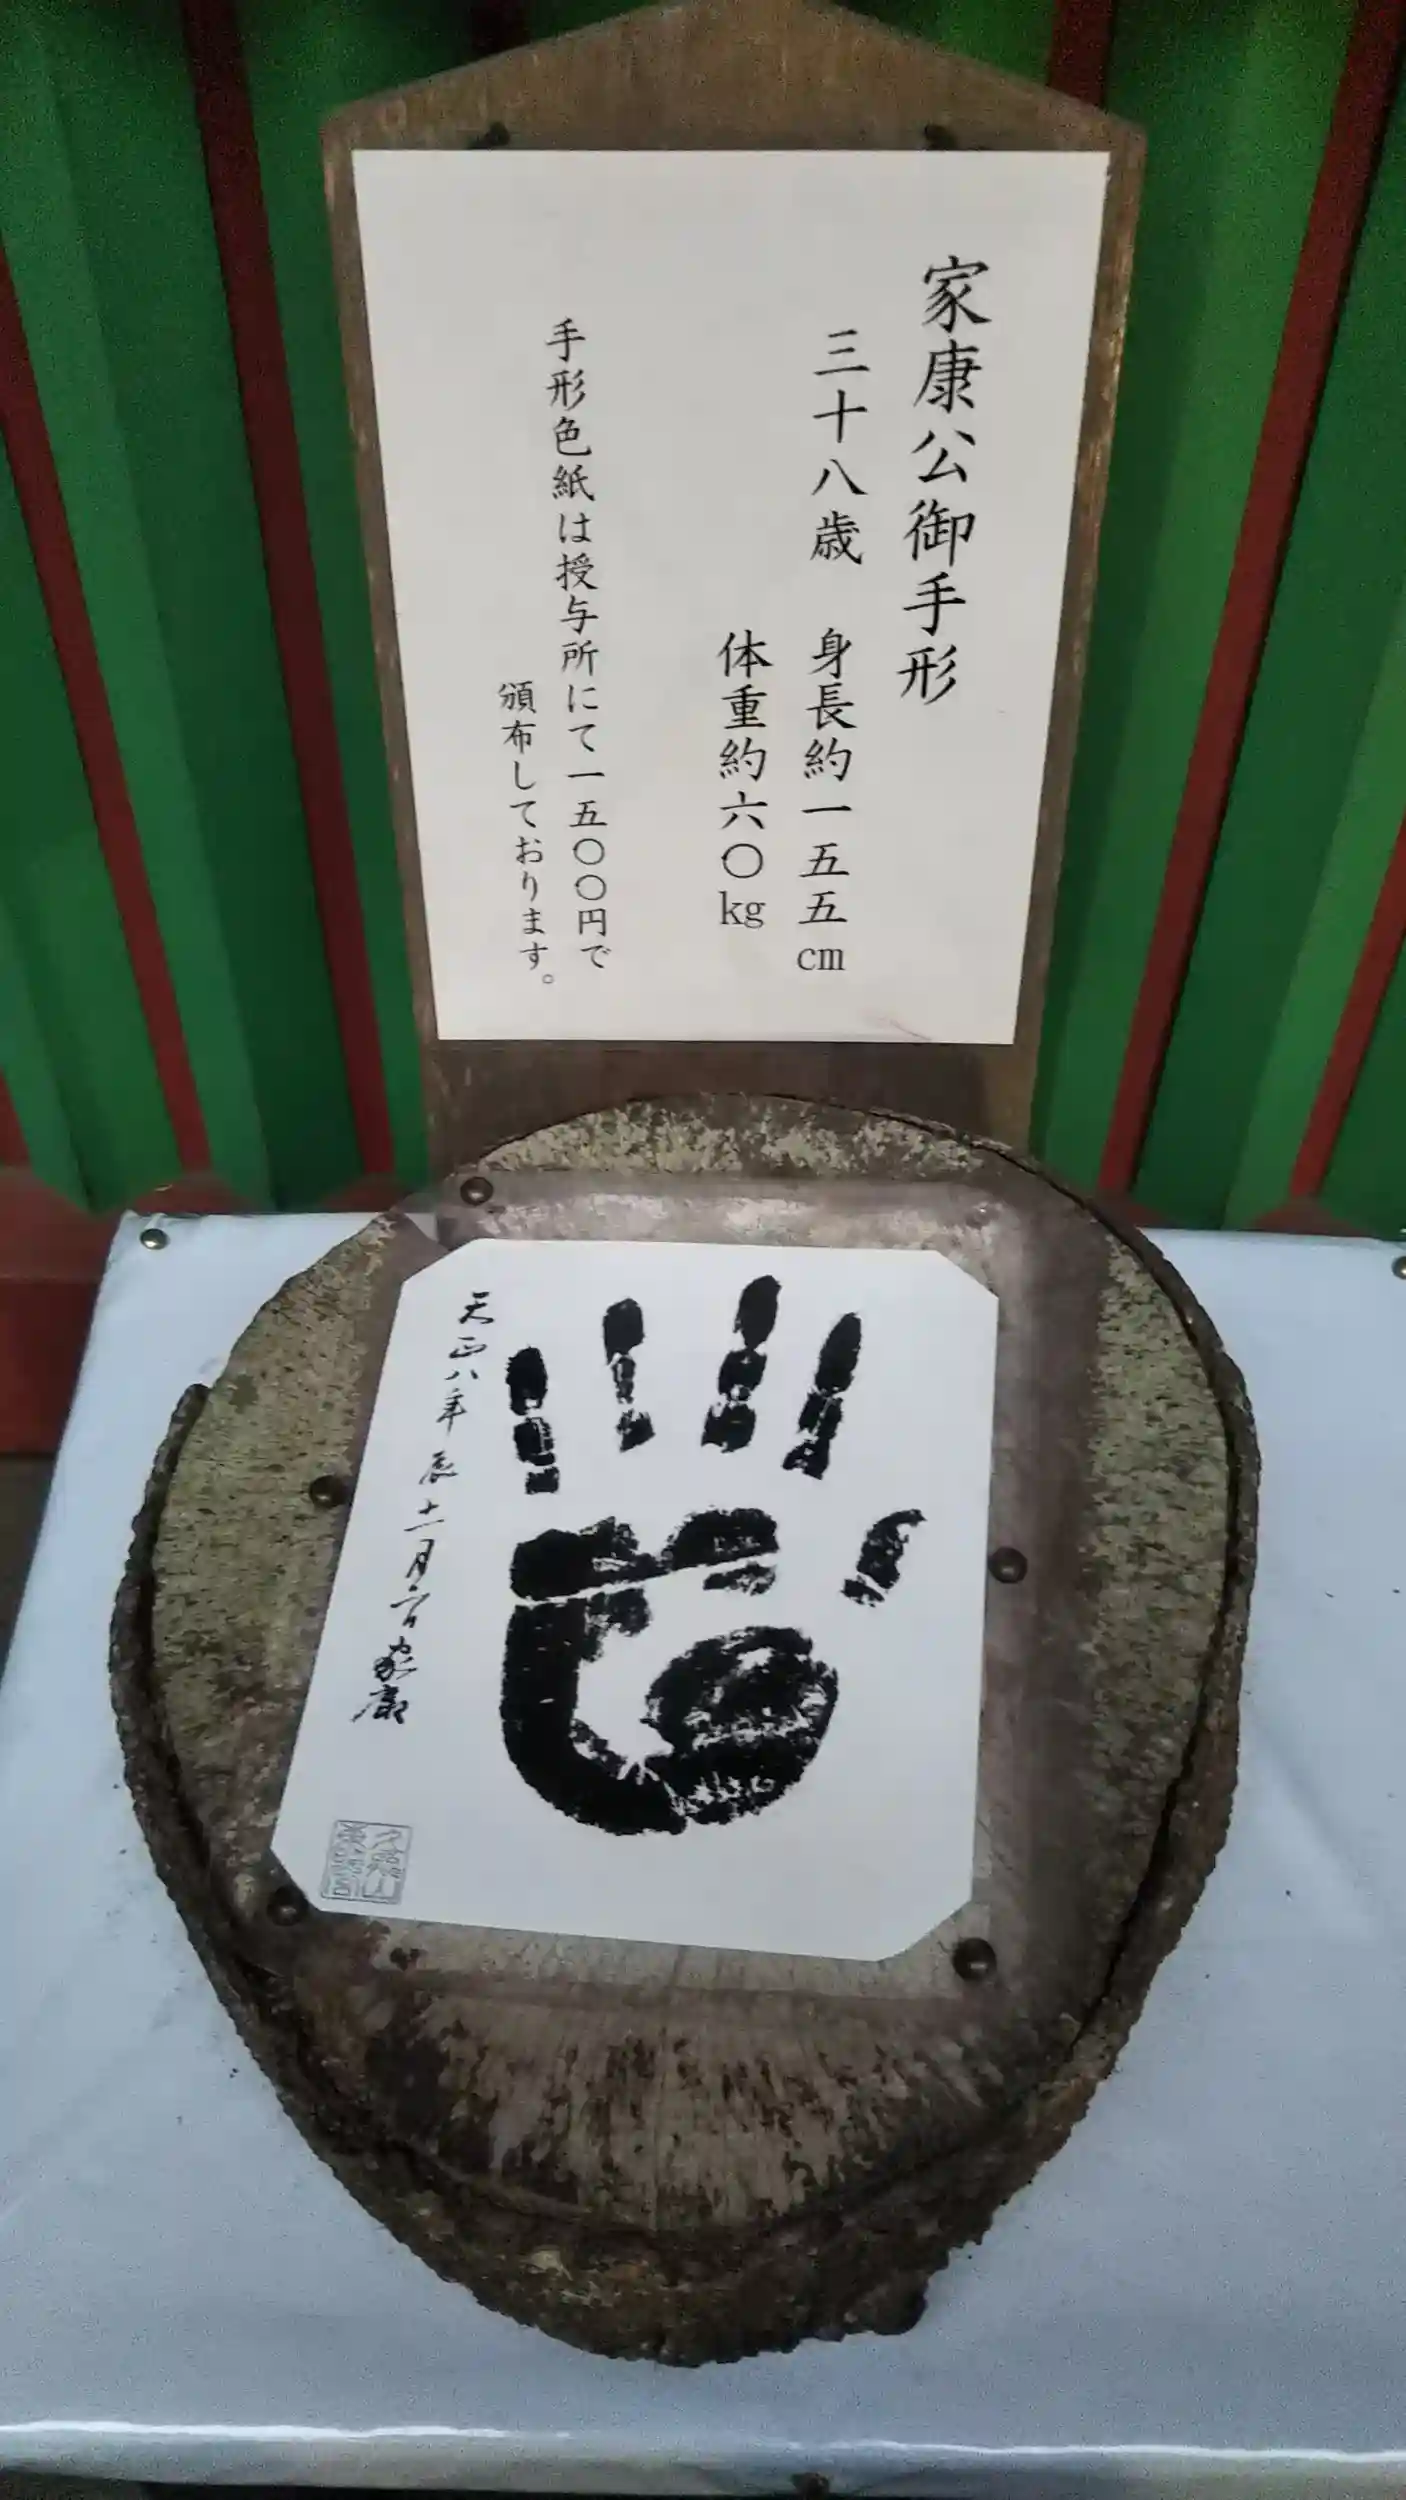 家康公御手形
三十八歳 身長約一五五cm
体重約六〇kg
手形色紙は授与所にて一五〇〇円で
頒布しております。
天正八年辰十二月六日家康
久能山
東照宮